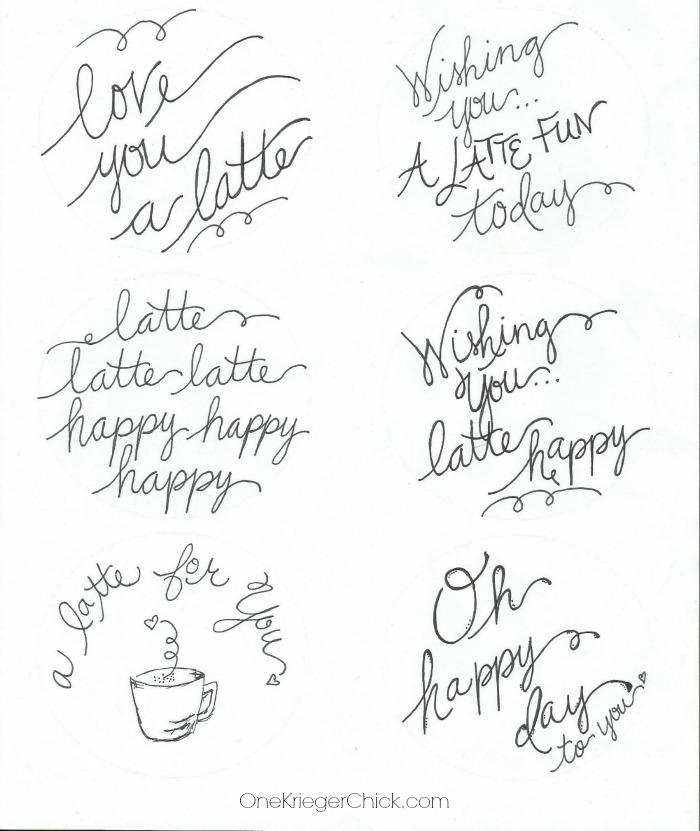 love
you
a latte
Wishing
you...
A LATTE FUN
today
latte
latte latte
happy happy
happy
Wishing
You...
latte happy
a latte for you
Oh
happy
day
to you
OneKriegerChick.com